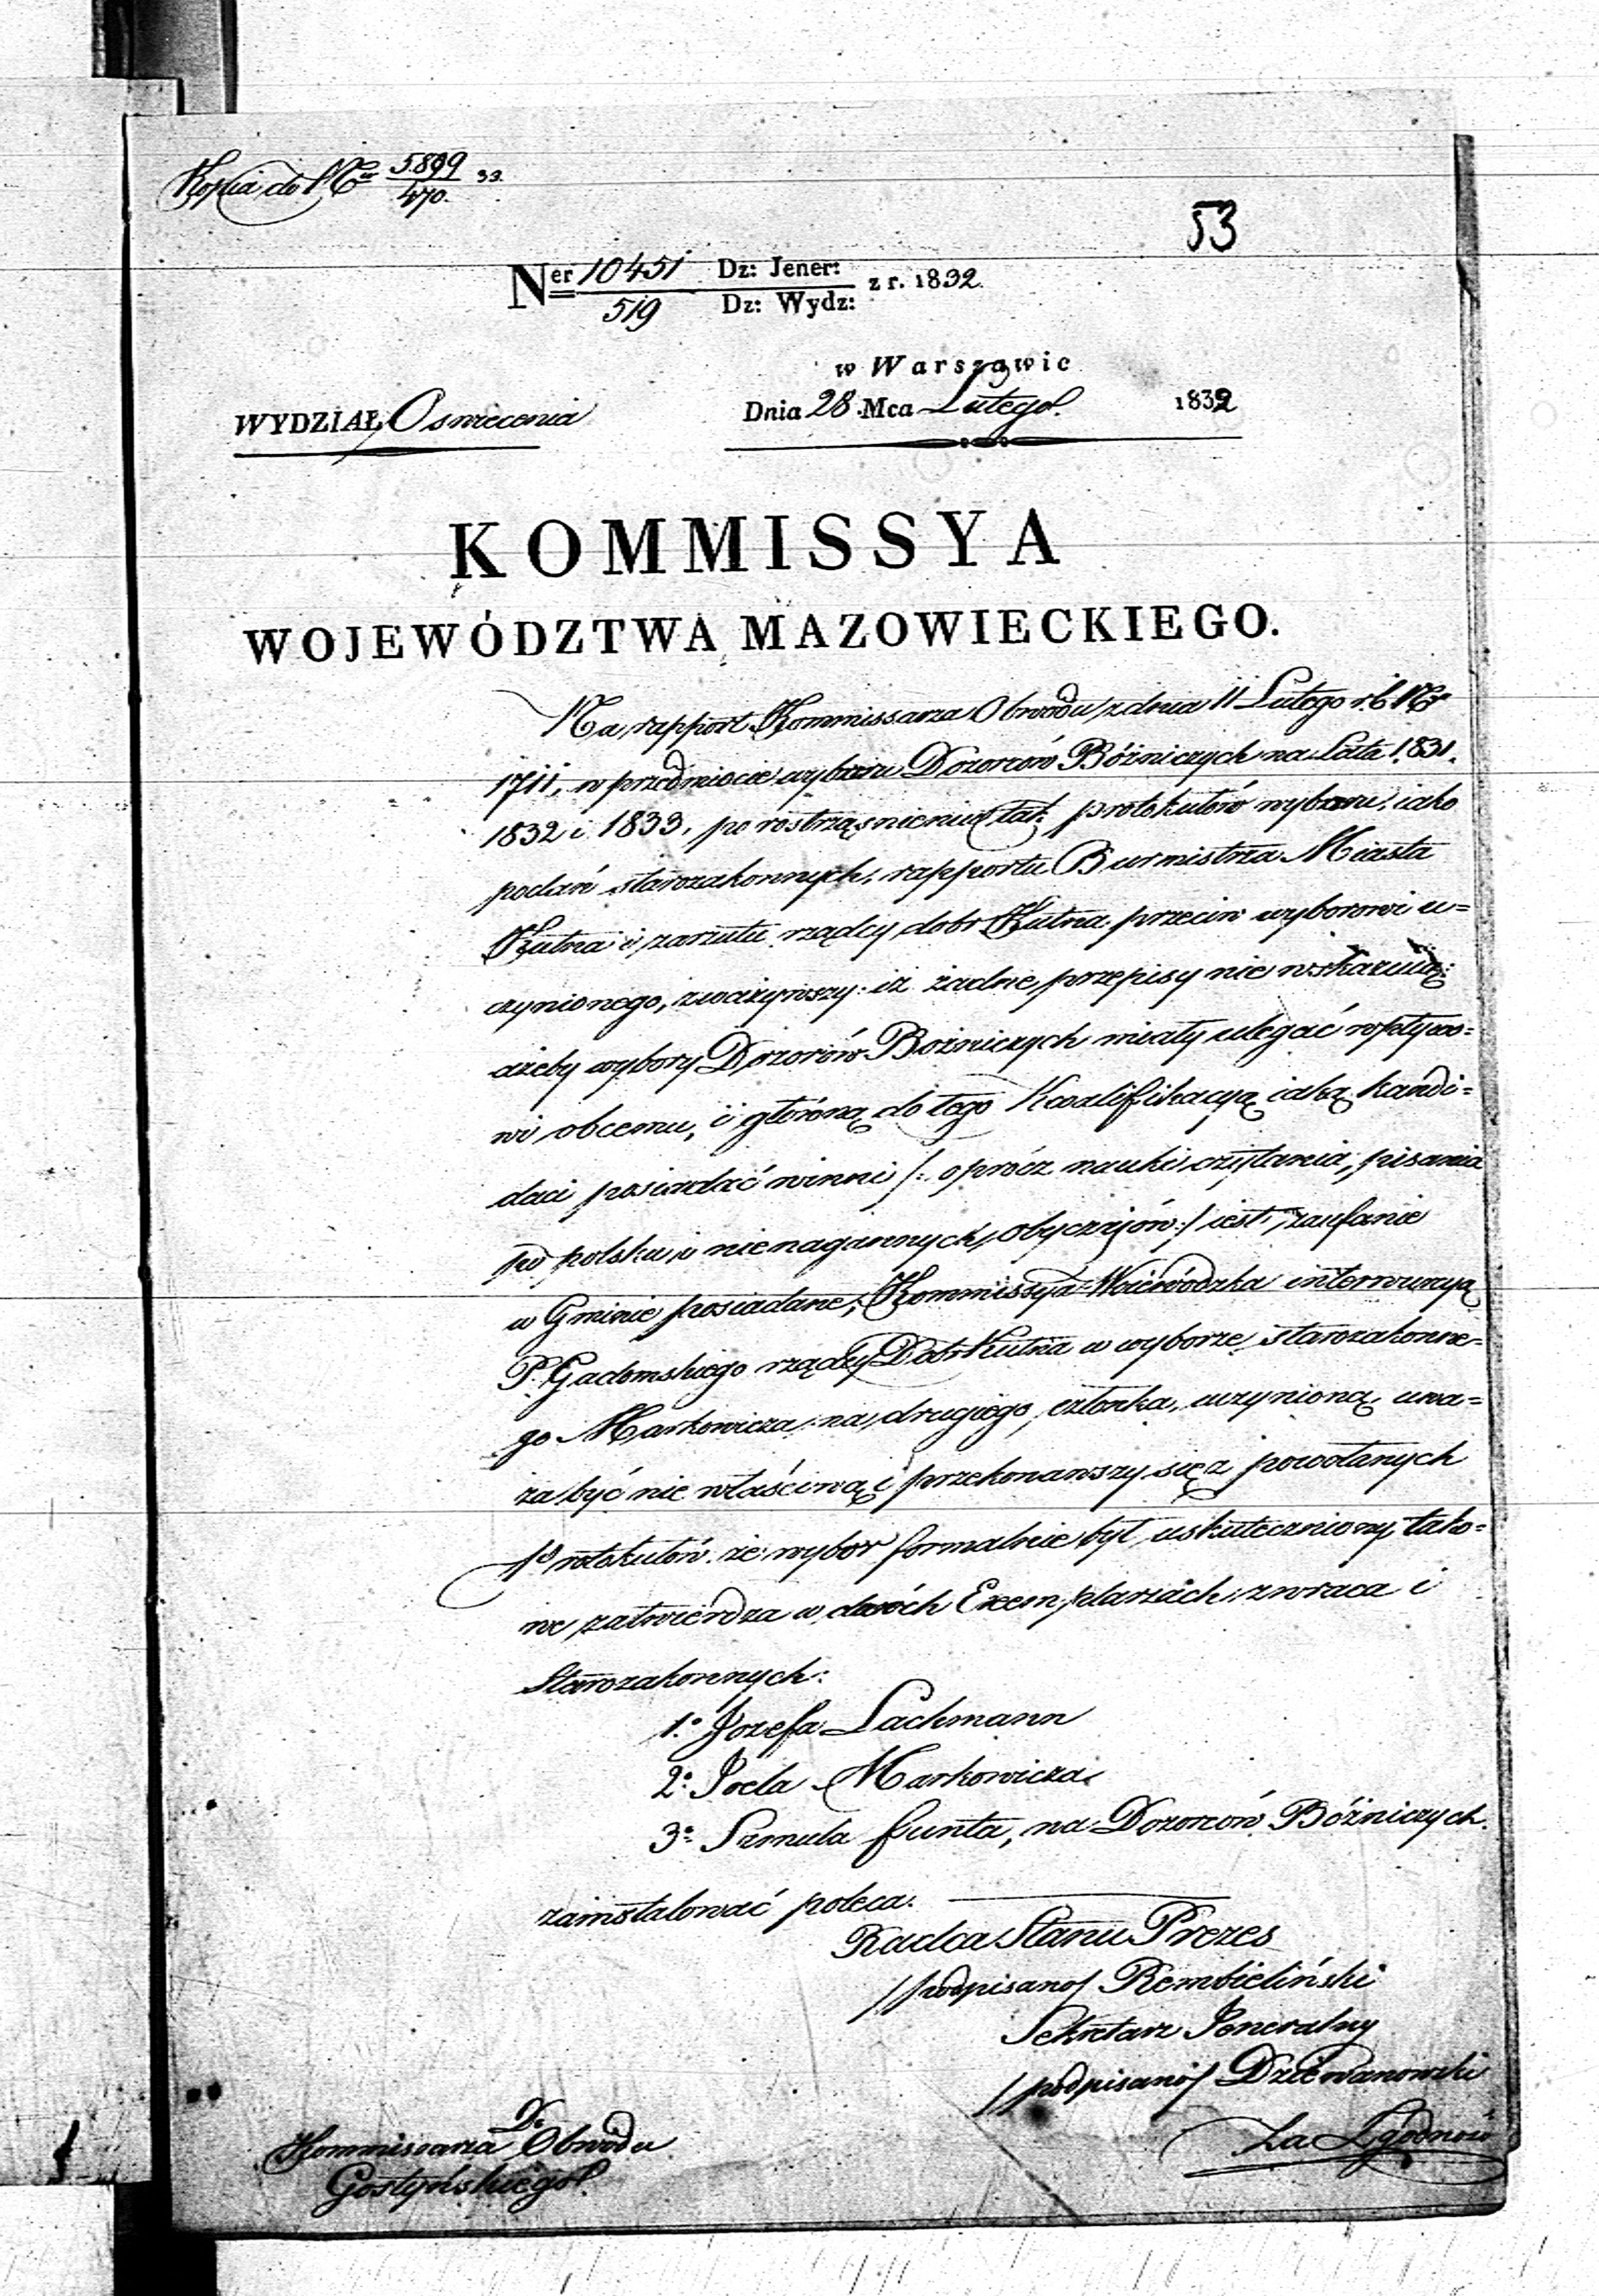 Kopia do Nru 5899/470. 33.
53
Ner 10451 Dz: Jener: z r. 1832.
519 Dz: Wydz:
w Warszawie
WYDZIAŁ Oswiecenia Dnia 28 Mca Lutego. 1832
KOMMISSYA
WOJEWÓDZTWA MAZOWIECKIEGO.
Na rapport Kommissarza Obwodu z dnia 11 Lutego r. b. Nr
1711, w przedmiocie wyboru Dozorców Bóżniczych na Lata 1831.
1832 i 1833, po rostrząśnieniu tak protokułów wyboru, iako
podań starozakonnych, rapportu Burmistrza Miasta
Kutna i zarzutu rządcy dobr Kutna przeciw wyborowi u=
czynionego, zważywszy: iż żadne przepisy nie wskazuią:
ażeby wybory Dozorów Bożniczych miały ulegać wpływo=
wi obcemu, i główną do tego Kwalifikacyą iaką kandi=
daci posiadać winni /: oprócz nauki czytania, pisania
po polsku i nienagannych obyczajów :/ iest zaufanie
w Gminie posiadane; Kommissya Woiewódzka interwencyą
P. Gadomskiego rządcy Dobr Kutna w wyborze starozakonne=
go Markowicza na drugiego członka, uczynioną, uwa=
ża być nie właściwą i przekonawszy się z powołanych
Protokułów że wybor formalnie był uskuteczniony, tako=
we zatwierdza w dwóch Exemplarzach zwraca i
Starozakonnych:
1.o Jozefa Lachmann
2.o Joela Markowicza
3.o Szmula Funta, na Dozorców Bóżniczych.
zainstalować poleca.
Radca Stanu Prezes
/podpisano/ Rembieliński
Sekretarz Jeneralny
/podpisano/ Dziewanowski
Do
Kommissarza Obwodu
Gostyńskiego.
Za Zgodność